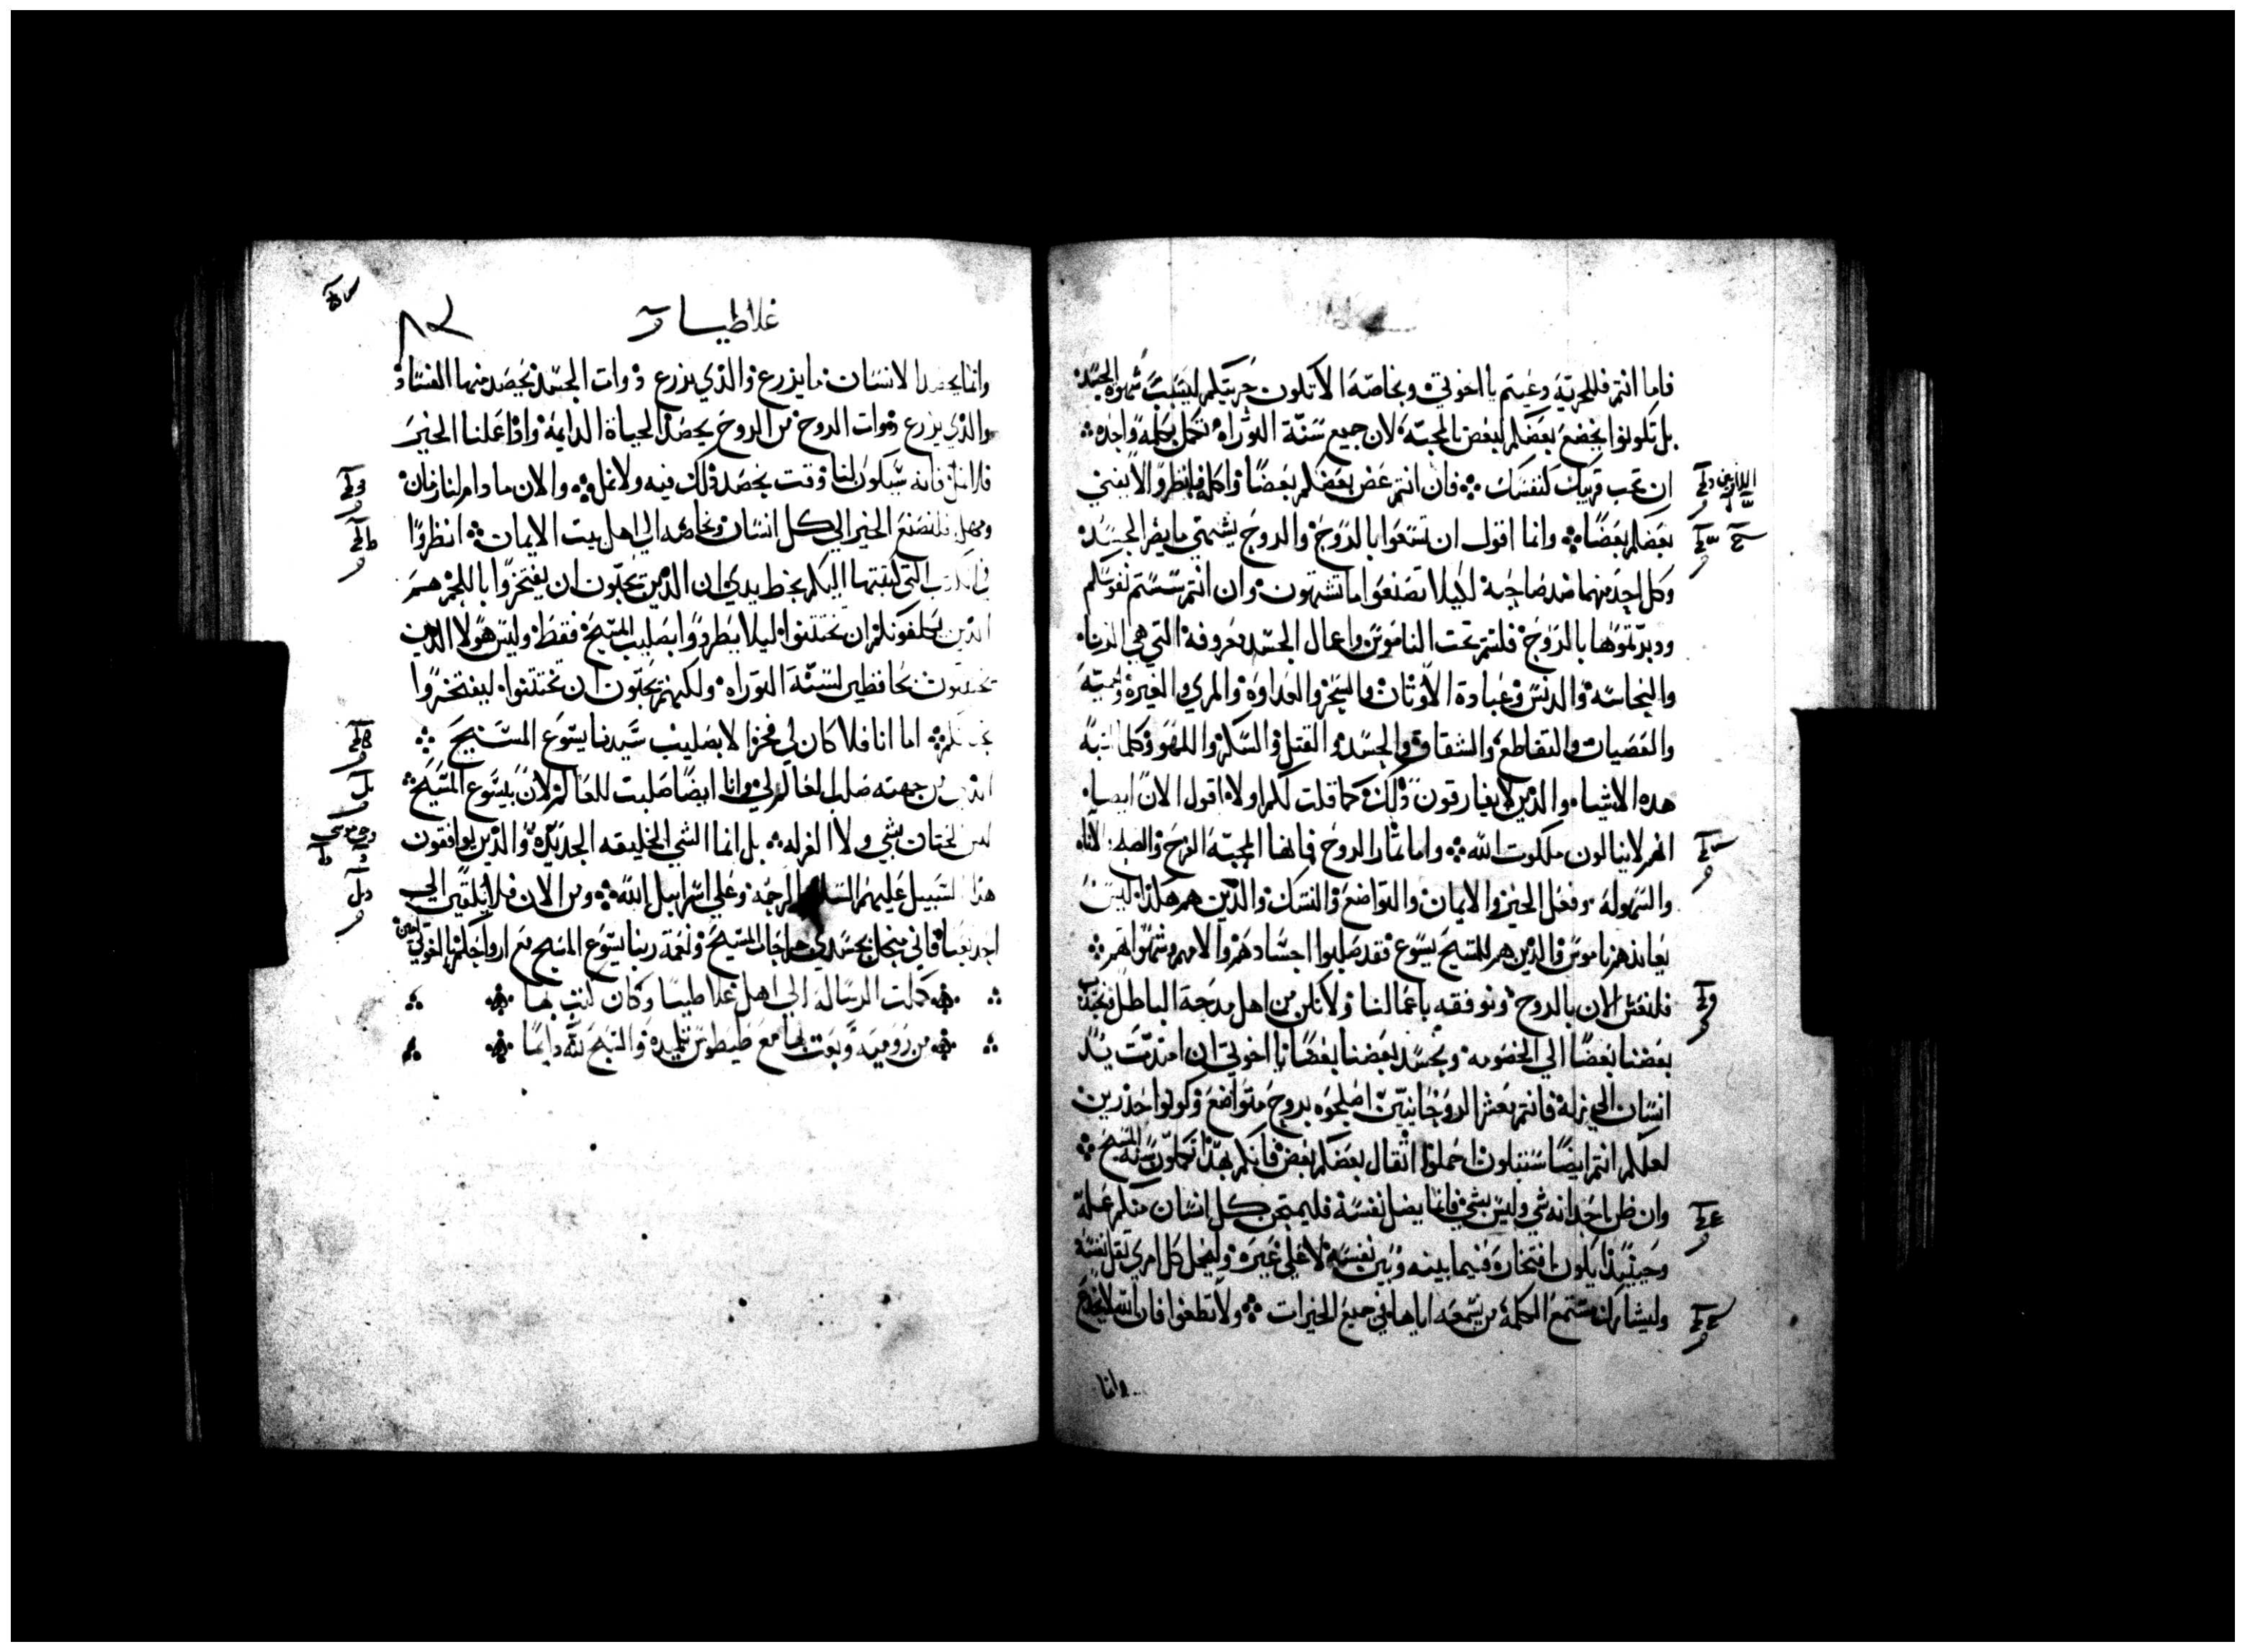 فاما انتم فللحريّة دعيتم يا اخوتي وبخاصّة الا تكون حريتكم لسبب شهوة الجسد
بل تكونوا يخضع بعضكم لبعض بالمحبّة لان جميع سنّة التوراة تكمل بكلمة واحدة
ان تحب قريبك كنفسك فان انتم عض بعضكم بعضًا واكله فانظروا الا يفني
بعضكم بعضًا وانما اقول ان تسعوا بالروح والروح يشتهي ما يضر الجسد
وكل احد منهما ضد صاحبه لكيلا تصنعوا ما تشتهون وان انتم سستم نفوسكم
ودبرتموها بالروح فلستم تحت الناموس واعمال الجسد معروفة التي هي الزناء
والنجاسة والدنس وعبادة الاوثان والسحر والعداوة والمري والغيرة والحميّة
والعصيان والتقاطع والشقاق والحسد والقتل والسكر واللهو وكلما اشبه
هذه الاشياء والذين لا يفارقون ذلك كما قلت لكم اولا اقول الان ايضا
انهم لا ينالون ملكوت الله واما ثمار الروح فانها المحبّة الفرح والصلح الاناه
والسهولة وفعل الخير والايمان والتواضع والنسك والذين هم هكذا ليس
يعاندهم ناموس والذين هم للمسيح يسوع فقد صلبوا اجسادهم والامهم وشهواتهم
فلنعش الان بالروح ونوفقه باعمالنا ولا نكن من اهل مدحة الباطل فيجذب
بعضنا بعضًا الي الخصومه ويحسد بعضنا بعضًا يا اخوتي ان امتدّت يد
انسان الي زلة فانتم معشر الروحانيين اصلحوه بروح متواضع وكونوا حذرين
لعلكم انتم ايضًا ستبتلون احملوا اثقال بعضكم بعض فانكم بهذا تكملون سنة المسيح
وان ظن احد انه شي وليس بشي فانما يضل نفسه فليمتحن كل انسان منكم عمله
وحينيذ يكون افتخاره فيما بينه وبين نفسه لا علي غيره وليحمل كل امري ثقل نفسه
وليشارك مستمع الكلمة من يسمعه اياها في جميع الخيرات ولا تطغوا فان الله لا يخدع
وانما
غلاطيا
وانما يحصد الانسان ما يزرع والذي يزرع ذوات الجسد يحصد منها الفساد
والذي يزرع ذوات الروح من الروح يحصد الحياة الدايمة واذا عملنا الخير
فلا نمل فانه سيكون لنا وقت يحصد ذلك فيه ولا نمل والان ما دام لنا زمان
ومهل فلنصنع الخير الي كل انسان وبخاصه الي اهل بيت الايمان انظروا
في الكتب التي كتبتها اليكم بخط يدي ان الذين يحبّون ان يفتخروا باللحم هم
الذين يكلفونكم ان تختتنوا ليلا يطردوا بصليب المسيح فقط وليس هولا الذين
يختتنون بحافظين لسنّة التوراه ولكنهم يحبّون ان تختتنوا ليفتخروا
اما انا فلا كان لي فخر الا بصليب سيدنا يسوع المسيح
الذي من جهته صلب العالم لي وانا ايضًا صلبت للعالم لان بيسوع المسيح
ليس الختان بشي ولا الغرله بل انما الشي الخليقه الجديدة والذين يوافقون
هذا السبيل عليهم السلام والرحمه وعلي اسراييل الله ومن الان فلا يلقين الي
احد تعبا فاني متحمل بجسدي جراحات المسيح ونعمة ربنا يسوع المسيح مع ارواحكم يا اخوتي امين
كملت الرسالة الي اهل غلاطيا وكان كتب بها
من رومية وبعث بها مع طيطوس تلميده والسبح لله دايمًا